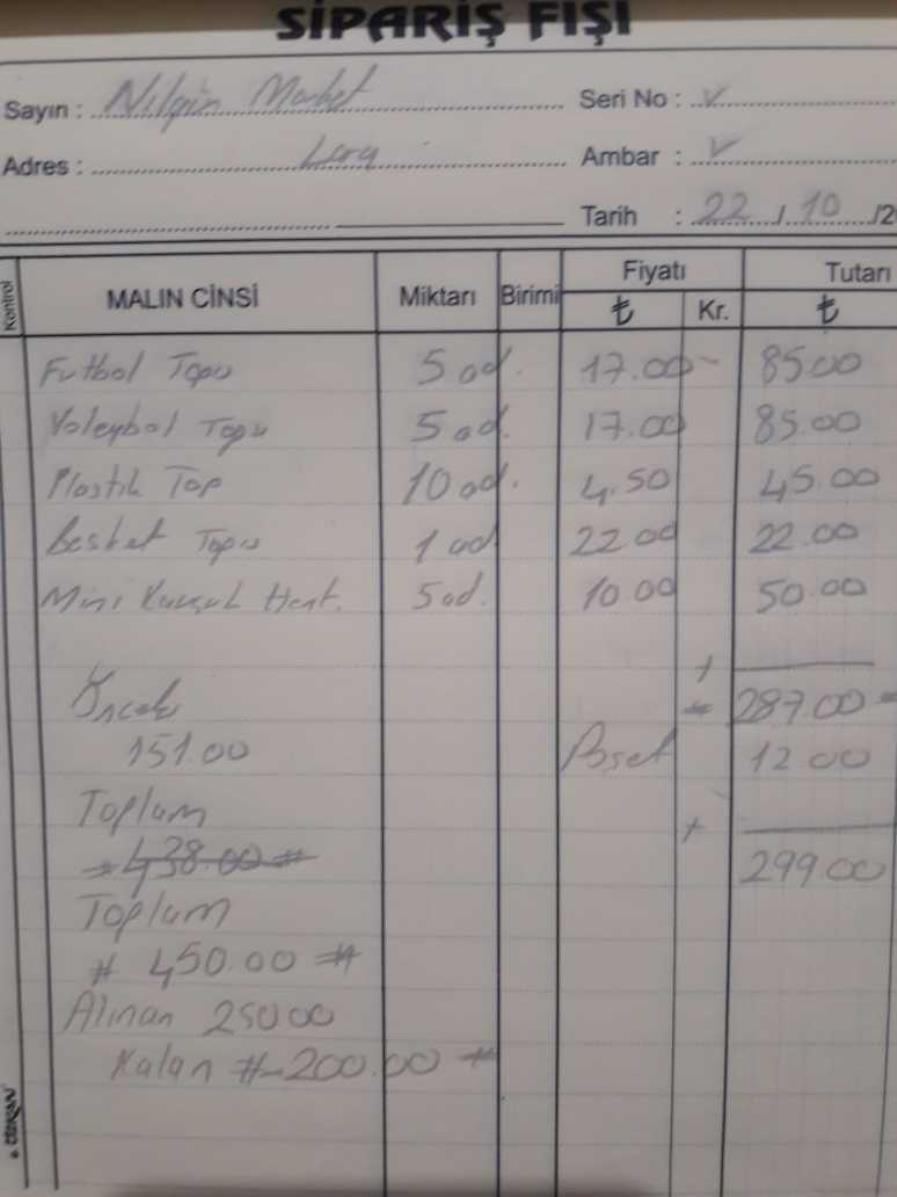 SİPARİŞ FİŞİ
Sayın : Nilgün Market Seri No :
Adres : Lara Ambar :
Tarih : 22 / 10 /2
Kontrol MALIN CİNSİ Miktarı Birimi Fiyatı ₺ Kr. Tutarı ₺
Futbol Topu 5 ad. 17.00 85.00
Voleybol Topu 5 ad. 17.00 85.00
Plastik Top 10 ad. 4.50 45.00
Basket Topu 1 ad 22.00 22.00
Mini 5 ad. 10.00 50.00
+
Önceki = 287.00 =
151.00 12.00
Toplam +
# 438.00 # 299.00
Toplam
# 450.00 #
Alınan 250.00
Kalan # 200.00 #